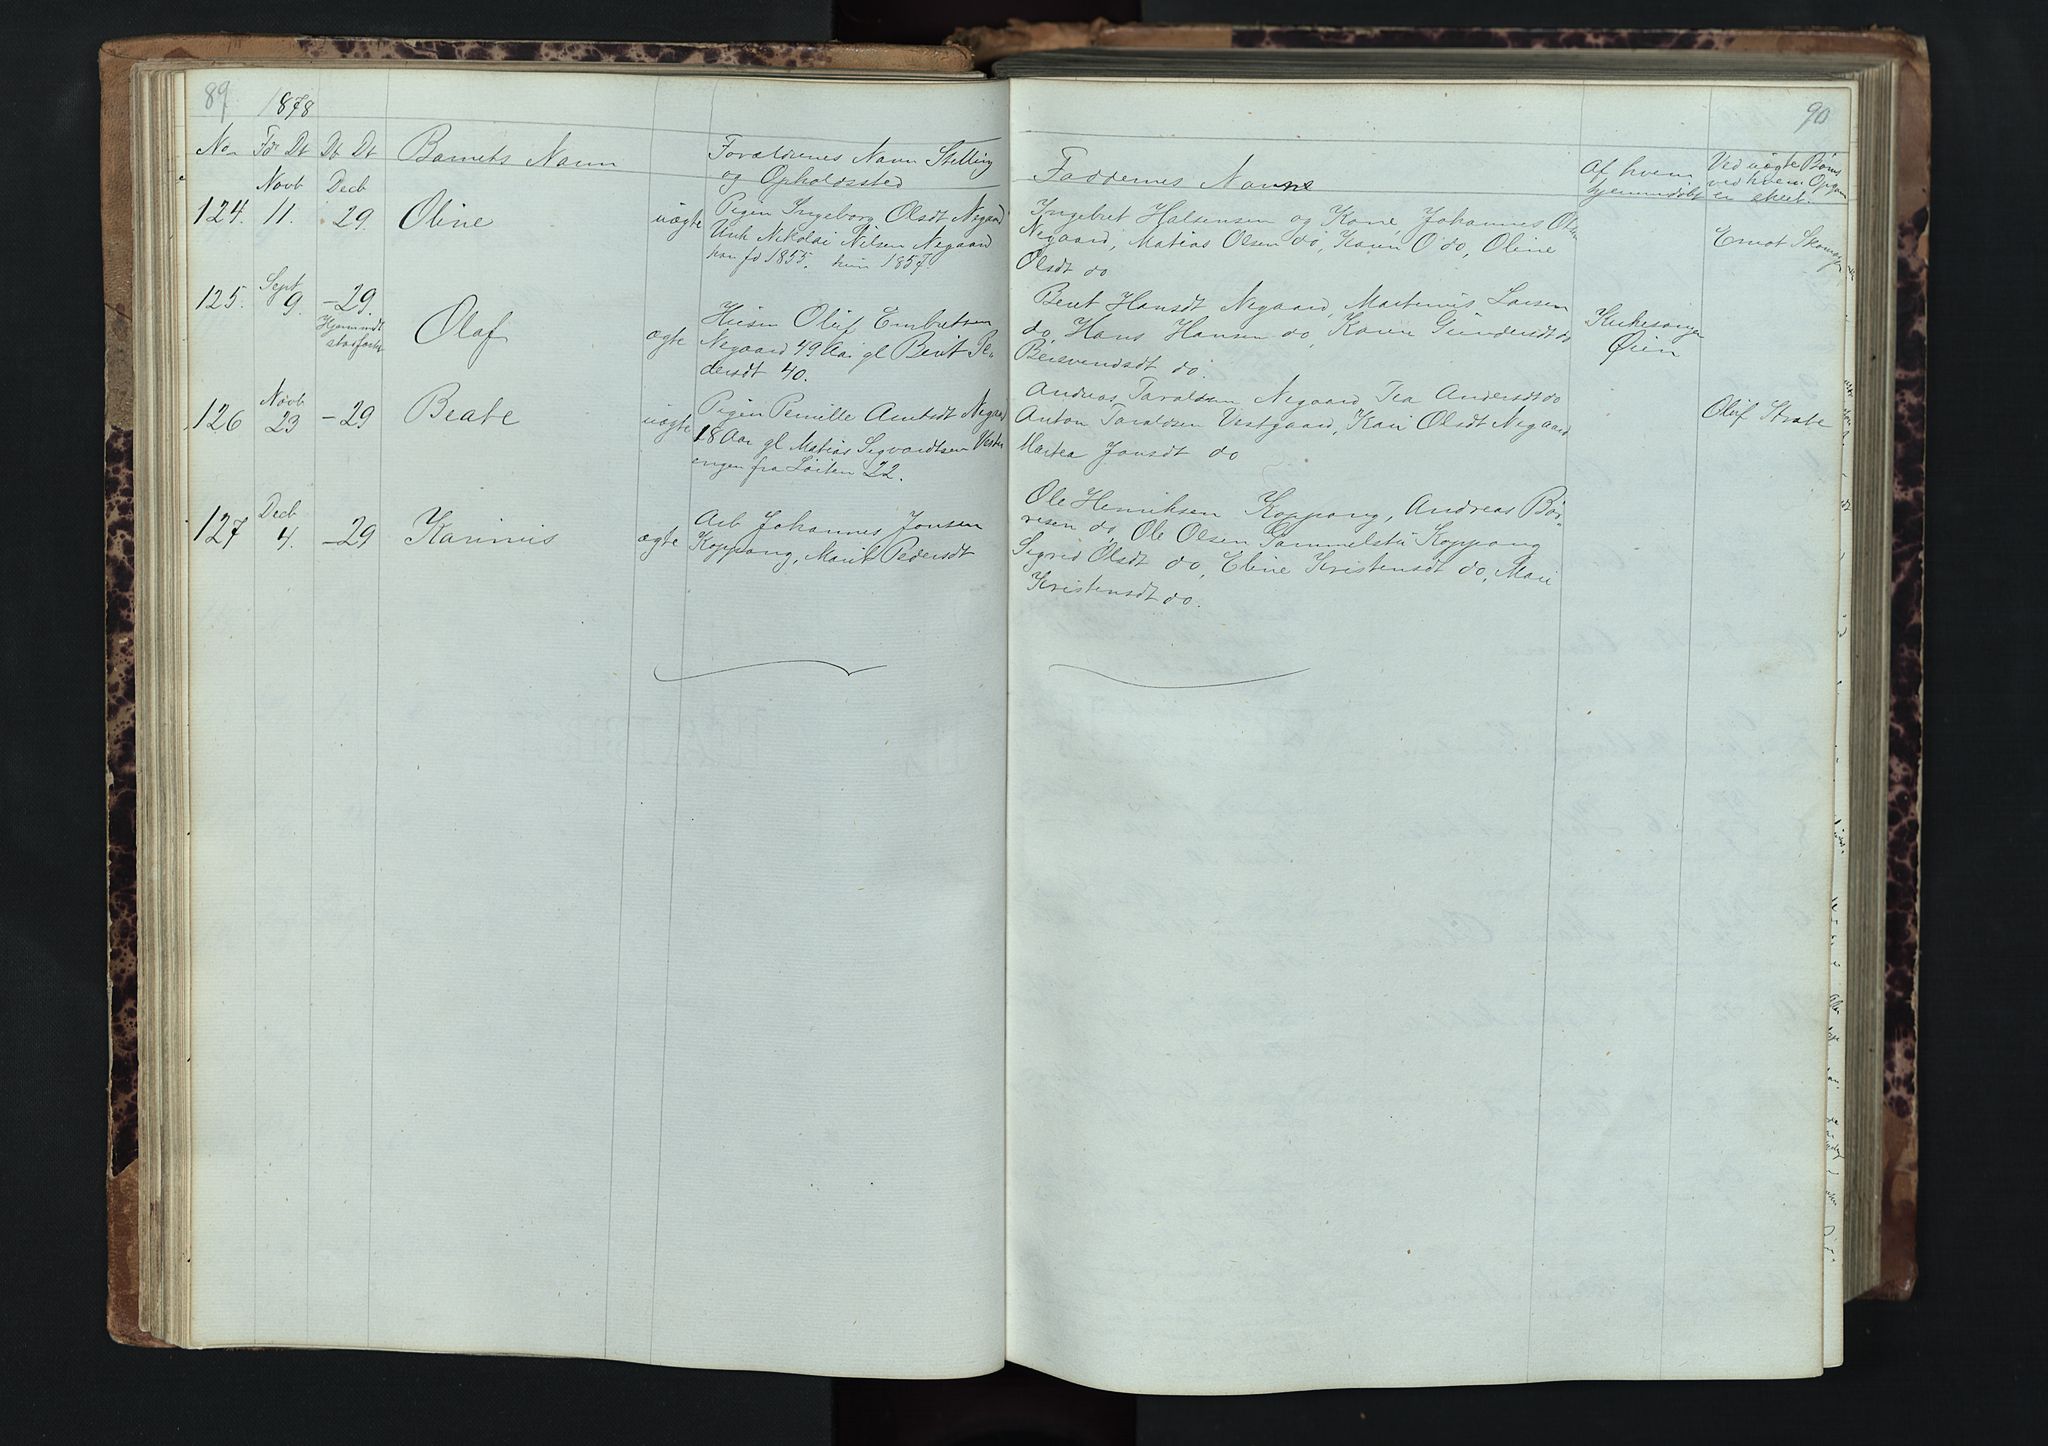 89
1878
No Fd Dt Db Dt Barnets Navn
Forældrenes Navn Stilling
og Opholdssted
Novb Decb
124. 11. 29. Oline uægte
Pigen Ingeborg Olsdt Negaard
Unk Nikolai Nilsen Negaard
han fd 1855. hun 1857.
Sept
125. 9. -29. Olaf ægte
Hjemmdt
Husm Oluf Embretsen
Negaard 49 Aar gl Berit Pe-
dersdt 40.
Novb
126 23 -29 Beate uægte
Pigen Pernille Arntsdt Negaard
18 Aar gl Matias Sigvardtsen Vester
engen fra Löiten 22.
Decb
127 4. -29 Karinus ægte
Arb Johannes Jonsen
Koppang, Marit Pedersdt
90
Faddernes Navne
Af hvem
hjemmedöbt
Ved uægte Börns
ved hvem Opgav
er skeet.
Ingebret Halsensen og Kone, Johannes Olsen
Negaard, Matias Olsen do, Karen O do, Oline
Olsdt do
Ernst
Berit Hansdt Negaard, Martinus Larsen
do, Hans Hansen do, Karen Gundersdt do
do.
Kirkesanger
Øien
Andreas Taraldsen Negaard Tea Andersdt do
Anton Taraldsen Vestgaard, Kari Olsdt Negaard
Martea Jonsdt do
Oluf Strate
Ole Henriksen Koppang, Andreas Bör-
resen do, Ole Olsen Gammelstu Koppang
Sigrid Olsdt do, Eline Kristensdt do, Mari
Kristensdt do.